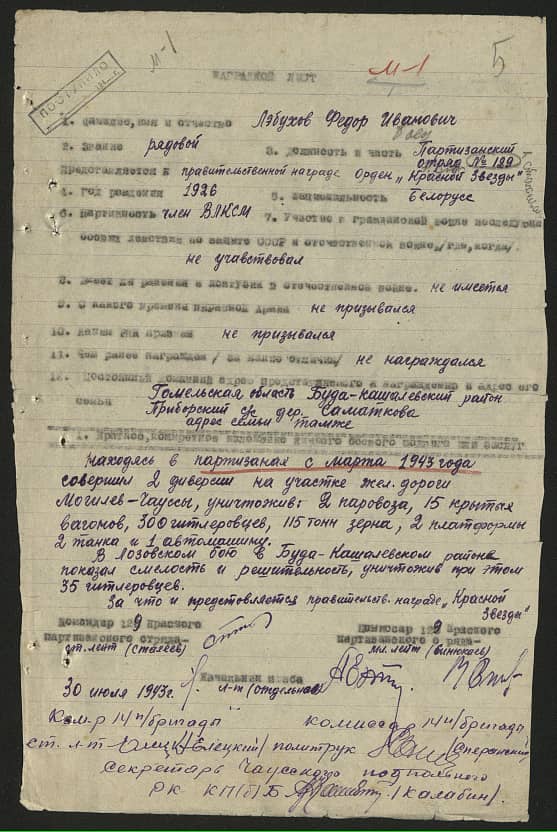 М-1
М-1
5
ПОСТУПИЛО
НАГРАДНОЙ ЛИСТ
1. Фамилия, имя и отчество Лябухов Федор Иванович
2. Звание рядовой 3. Должность и часть Партизанский
отряд № 129
Представляется к правительственной награде Орден „Красной Звезды"
4. Год рождения 1926 5. Национальность Белорусс
6. Партийность член ВЛКСМ 7. Участие в гражданской войне последующих
боевых действиях по защите СССР и отечественной войне /где, когда/
не учавствовал
8. Имеет ли ранения и контузии в отечественной войне. не имеется
9. С какого времени в Красной Армии не призывался
10. Каким РВК призван не призывался
11. Чем ранее награжден / за какие отличия/ не награждался
12. Постоянный домашний адрес представляемого к награждению и адрес его
семьи
Гомельская область Буда-Кашалевский район
Приборский с/с дер. Саматкова
адрес семьи тамже
1. Краткое, конкретное изложение личного боевого подвига или заслуг
Находясь в партизанах с марта 1943 года
совершил 2 диверсии на участке жел. дороги
Могилев-Чауссы, уничтожив: 2 паровоза, 15 крытых
вагонов, 300 гитлеровцев, 115 тонн зерна, 2 платформы
2 танка и 1 автомашину.
В Лозовском бою в Буда-Кашалевском районе
показал смелость и решительность, уничтожив при этом
35 гитлеровцев.
За что и предстовляется правительств. награде „Красной
Звезды"
Командир 129 Красного
партизанского отряда-
Комиссар 129 Красного
партизанского отряда-
мл. лейт
Начальник штаба
30 июля 1943г. л-т
Ком-р 14 п/бригады комиссар 14 п/бригады
ст. л-т /Елецкий/ политрук /Сперанский/
секретарь Чаусского подпольного
РК КП(б)Б /Калабин/